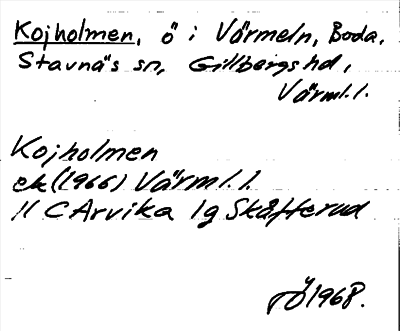 Kojholmen, ö i Värmeln, Boda,
Stavnäs sn, Gillbergs hd,
Värml. l.
Kojholmen
ek (1966) Värml. l.
11 C Arvika 1g Skåfterud
1968.